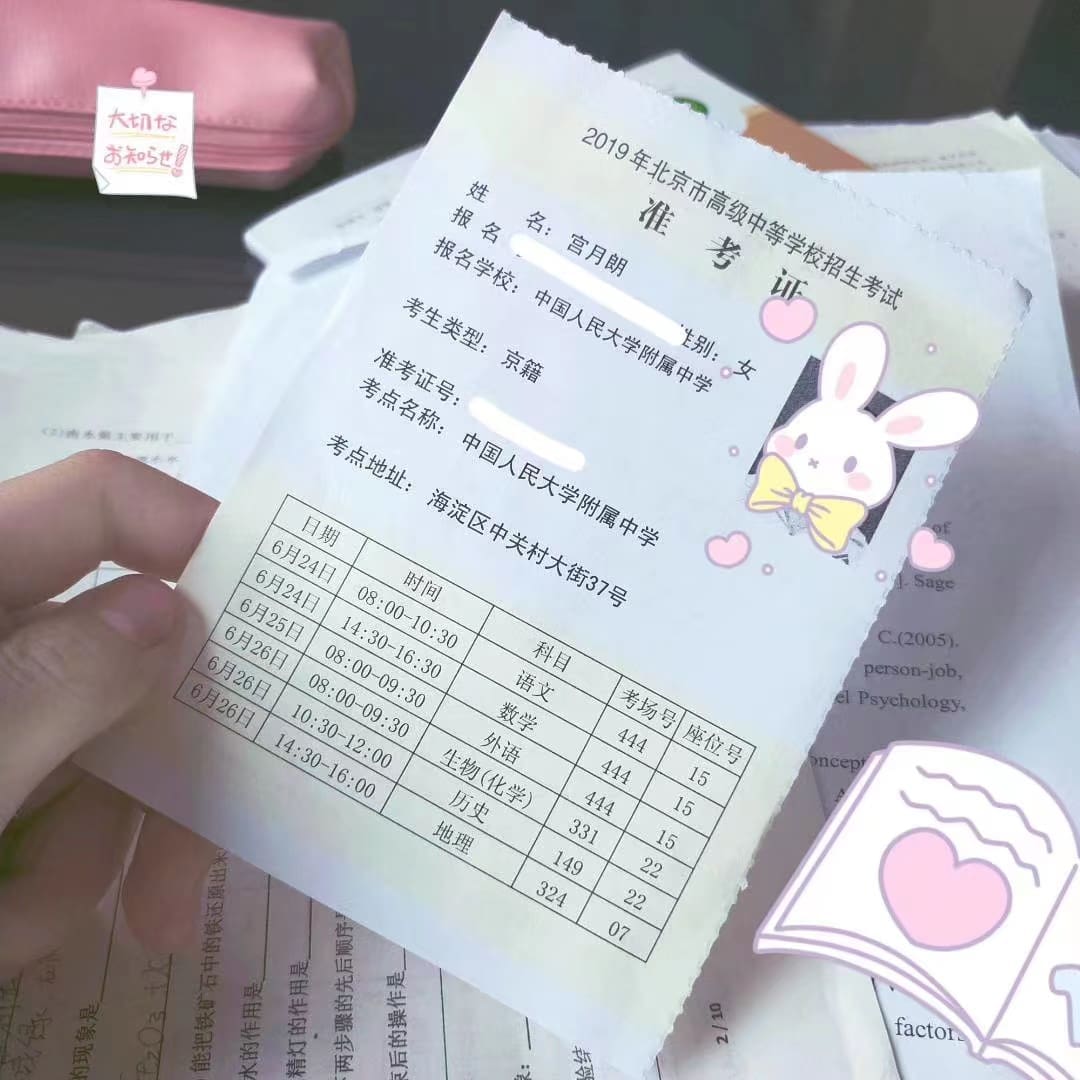 大切な
お知らせ!
2019年北京市高级中等学校招生考试
准考证
姓名：宫月朗
报名
性别：女
报名学校：中国人民大学附属中学
考生类型：京籍
准考证号：
考点名称：中国人民大学附属中学
考点地址：海淀区中关村大街37号
日期 时间 科目 考场号 座位号
6月24日 08:00-10:30 语文 444 15
6月24日 14:30-16:30 数学 444 15
6月25日 08:00-09:30 外语 444 15
6月26日 08:00-09:30 生物(化学) 331 22
6月26日 10:30-12:00 历史 149 22
6月26日 14:30-16:00 地理 324 07
of
Sage
C.(2005).
person-job,
Psychology,
factors
2/10
的现象是
能把铁矿石中的铁还原出来
水的作用是
精灯的作用是
两步骤的先后顺序
束后的操作是